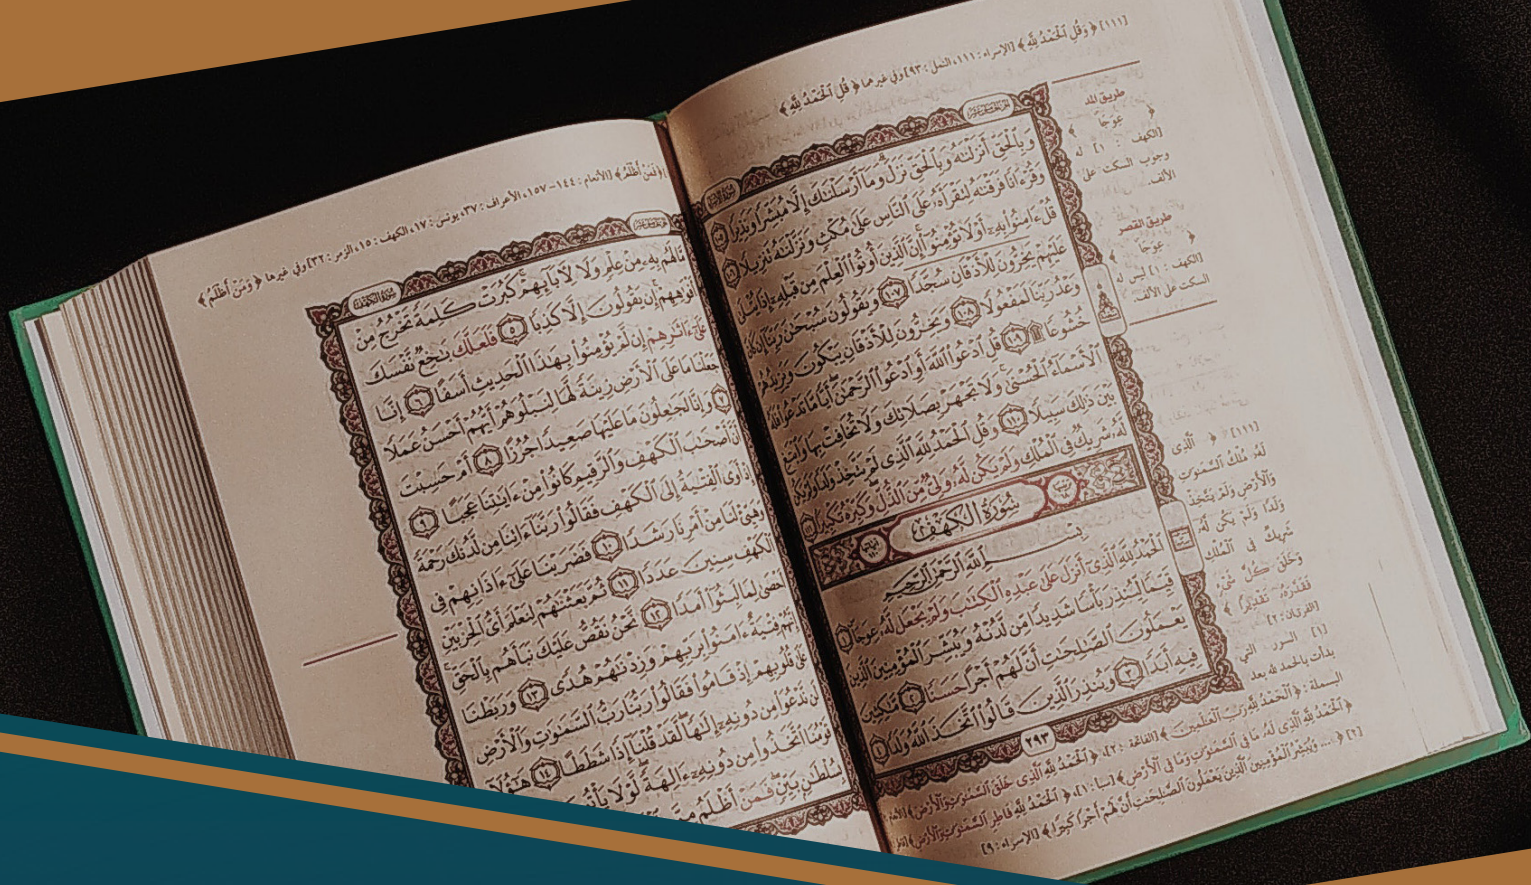 [١١١] ﴿ وَقُلِ ٱلْحَمْدُ لِلَّهِ ﴾ [الإسراء: ١١١، النمل: ٩٣] وفي غيرها ﴿ قُلِ ٱلْحَمْدُ لِلَّهِ ﴾
وَبِٱلْحَقِّ أَنزَلْنَٰهُ وَبِٱلْحَقِّ نَزَلَ وَمَآ أَرْسَلْنَٰكَ إِلَّا مُبَشِّرًا وَنَذِيرًا
وَقُرْءَانًا فَرَقْنَٰهُ لِتَقْرَأَهُۥ عَلَى ٱلنَّاسِ عَلَىٰ مُكْثٍ وَنَزَّلْنَٰهُ تَنزِيلًا
قُلْ ءَامِنُوا۟ بِهِۦٓ أَوْ لَا تُؤْمِنُوٓا۟ إِنَّ ٱلَّذِينَ أُوتُوا۟ ٱلْعِلْمَ مِن قَبْلِهِۦٓ إِذَا يُتْلَىٰ
عَلَيْهِمْ يَخِرُّونَ لِلْأَذْقَانِ سُجَّدًا ۝١٠٧ وَيَقُولُونَ سُبْحَٰنَ رَبِّنَآ إِن كَانَ
وَعْدُ رَبِّنَا لَمَفْعُولًا ۝١٠٨ وَيَخِرُّونَ لِلْأَذْقَانِ يَبْكُونَ وَيَزِيدُهُمْ
خُشُوعًا ۩ ۝١٠٩ قُلِ ٱدْعُوا۟ ٱللَّهَ أَوِ ٱدْعُوا۟ ٱلرَّحْمَٰنَ أَيًّا مَّا تَدْعُوا۟ فَلَهُ
ٱلْأَسْمَآءُ ٱلْحُسْنَىٰ وَلَا تَجْهَرْ بِصَلَاتِكَ وَلَا تُخَافِتْ بِهَا وَٱبْتَغِ
بَيْنَ ذَٰلِكَ سَبِيلًا ۝١١٠ وَقُلِ ٱلْحَمْدُ لِلَّهِ ٱلَّذِى لَمْ يَتَّخِذْ وَلَدًا وَلَمْ يَكُن
لَّهُۥ شَرِيكٌ فِى ٱلْمُلْكِ وَلَمْ يَكُن لَّهُۥ وَلِىٌّ مِّنَ ٱلذُّلِّ وَكَبِّرْهُ تَكْبِيرًۢا
سُورَةُ الكَهْفِ
بِسْمِ ٱللَّهِ ٱلرَّحْمَٰنِ ٱلرَّحِيمِ
ٱلْحَمْدُ لِلَّهِ ٱلَّذِىٓ أَنزَلَ عَلَىٰ عَبْدِهِ ٱلْكِتَٰبَ وَلَمْ يَجْعَل لَّهُۥ عِوَجَا ۝١
قَيِّمًا لِّيُنذِرَ بَأْسًا شَدِيدًا مِّن لَّدُنْهُ وَيُبَشِّرَ ٱلْمُؤْمِنِينَ ٱلَّذِينَ
يَعْمَلُونَ ٱلصَّٰلِحَٰتِ أَنَّ لَهُمْ أَجْرًا حَسَنًا ۝٢ مَّٰكِثِينَ
فِيهِ أَبَدًا ۝٣ وَيُنذِرَ ٱلَّذِينَ قَالُوا۟ ٱتَّخَذَ ٱللَّهُ وَلَدًا ۝٤
٢٩٣
طريق المد
﴿ عِوَجَا ﴾
[الكهف: ١] له
وجوب السكت على
الألف.
طريق القصر
﴿ عِوَجَا ﴾
[الكهف: ١] ليس له
السكت على الألف.
[١١١] ﴿ ٱلَّذِى
لَهُۥ مُلْكُ ٱلسَّمَٰوَٰتِ
وَٱلْأَرْضِ وَلَمْ يَتَّخِذْ
وَلَدًا وَلَمْ يَكُن لَّهُۥ
شَرِيكٌ فِى ٱلْمُلْكِ
وَخَلَقَ كُلَّ شَىْءٍ
فَقَدَّرَهُۥ تَقْدِيرًا ﴾
[الفرقان: ٢]
[١] السور التي
بدأت بالحمد لله بعد
البسملة: ﴿ ٱلْحَمْدُ لِلَّهِ رَبِّ ٱلْعَٰلَمِينَ ﴾ [الفاتحة: ٢]، ﴿ ٱلْحَمْدُ لِلَّهِ ٱلَّذِى خَلَقَ ٱلسَّمَٰوَٰتِ وَٱلْأَرْضَ ﴾
﴿ ٱلْحَمْدُ لِلَّهِ ٱلَّذِى لَهُۥ مَا فِى ٱلسَّمَٰوَٰتِ وَمَا فِى ٱلْأَرْضِ ﴾ [سبأ: ١]، ﴿ ٱلْحَمْدُ لِلَّهِ فَاطِرِ ٱلسَّمَٰوَٰتِ وَٱلْأَرْضِ ﴾
[٢] ﴿ ... وَيُبَشِّرُ ٱلْمُؤْمِنِينَ ٱلَّذِينَ يَعْمَلُونَ ٱلصَّٰلِحَٰتِ أَنَّ لَهُمْ أَجْرًا كَبِيرًا ﴾ [الإسراء: ٩]
﴿ فَمَنْ أَظْلَمُ ﴾ [الأنعام: ١٤٤-١٥٧، الأعراف: ٣٧، يونس: ١٧، الكهف: ١٥، الزمر: ٣٢] وفي غيرها ﴿ وَمَنْ أَظْلَمُ ﴾
سُورَةُ الكَهْفِ
مَّا لَهُم بِهِۦ مِنْ عِلْمٍ وَلَا لِءَابَآئِهِمْ كَبُرَتْ كَلِمَةً تَخْرُجُ مِنْ
أَفْوَٰهِهِمْ إِن يَقُولُونَ إِلَّا كَذِبًا ۝٥ فَلَعَلَّكَ بَٰخِعٌ نَّفْسَكَ
عَلَىٰٓ ءَاثَٰرِهِمْ إِن لَّمْ يُؤْمِنُوا۟ بِهَٰذَا ٱلْحَدِيثِ أَسَفًا ۝٦ إِنَّا
جَعَلْنَا مَا عَلَى ٱلْأَرْضِ زِينَةً لَّهَا لِنَبْلُوَهُمْ أَيُّهُمْ أَحْسَنُ عَمَلًا
۝٧ وَإِنَّا لَجَٰعِلُونَ مَا عَلَيْهَا صَعِيدًا جُرُزًا ۝٨ أَمْ حَسِبْتَ
أَنَّ أَصْحَٰبَ ٱلْكَهْفِ وَٱلرَّقِيمِ كَانُوا۟ مِنْ ءَايَٰتِنَا عَجَبًا ۝٩
إِذْ أَوَى ٱلْفِتْيَةُ إِلَى ٱلْكَهْفِ فَقَالُوا۟ رَبَّنَآ ءَاتِنَا مِن لَّدُنكَ رَحْمَةً
وَهَيِّئْ لَنَا مِنْ أَمْرِنَا رَشَدًا ۝١٠ فَضَرَبْنَا عَلَىٰٓ ءَاذَانِهِمْ فِى
ٱلْكَهْفِ سِنِينَ عَدَدًا ۝١١ ثُمَّ بَعَثْنَٰهُمْ لِنَعْلَمَ أَىُّ ٱلْحِزْبَيْنِ
أَحْصَىٰ لِمَا لَبِثُوٓا۟ أَمَدًا ۝١٢ نَّحْنُ نَقُصُّ عَلَيْكَ نَبَأَهُم بِٱلْحَقِّ
إِنَّهُمْ فِتْيَةٌ ءَامَنُوا۟ بِرَبِّهِمْ وَزِدْنَٰهُمْ هُدًى ۝١٣ وَرَبَطْنَا
عَلَىٰ قُلُوبِهِمْ إِذْ قَامُوا۟ فَقَالُوا۟ رَبُّنَا رَبُّ ٱلسَّمَٰوَٰتِ وَٱلْأَرْضِ
لَن نَّدْعُوَا۟ مِن دُونِهِۦٓ إِلَٰهًا لَّقَدْ قُلْنَآ إِذًا شَطَطًا ۝١٤ هَٰٓؤُلَآءِ
قَوْمُنَا ٱتَّخَذُوا۟ مِن دُونِهِۦٓ ءَالِهَةً لَّوْلَا يَأْتُونَ
بِسُلْطَٰنٍۭ بَيِّنٍ فَمَنْ أَظْلَمُ مِمَّنِ